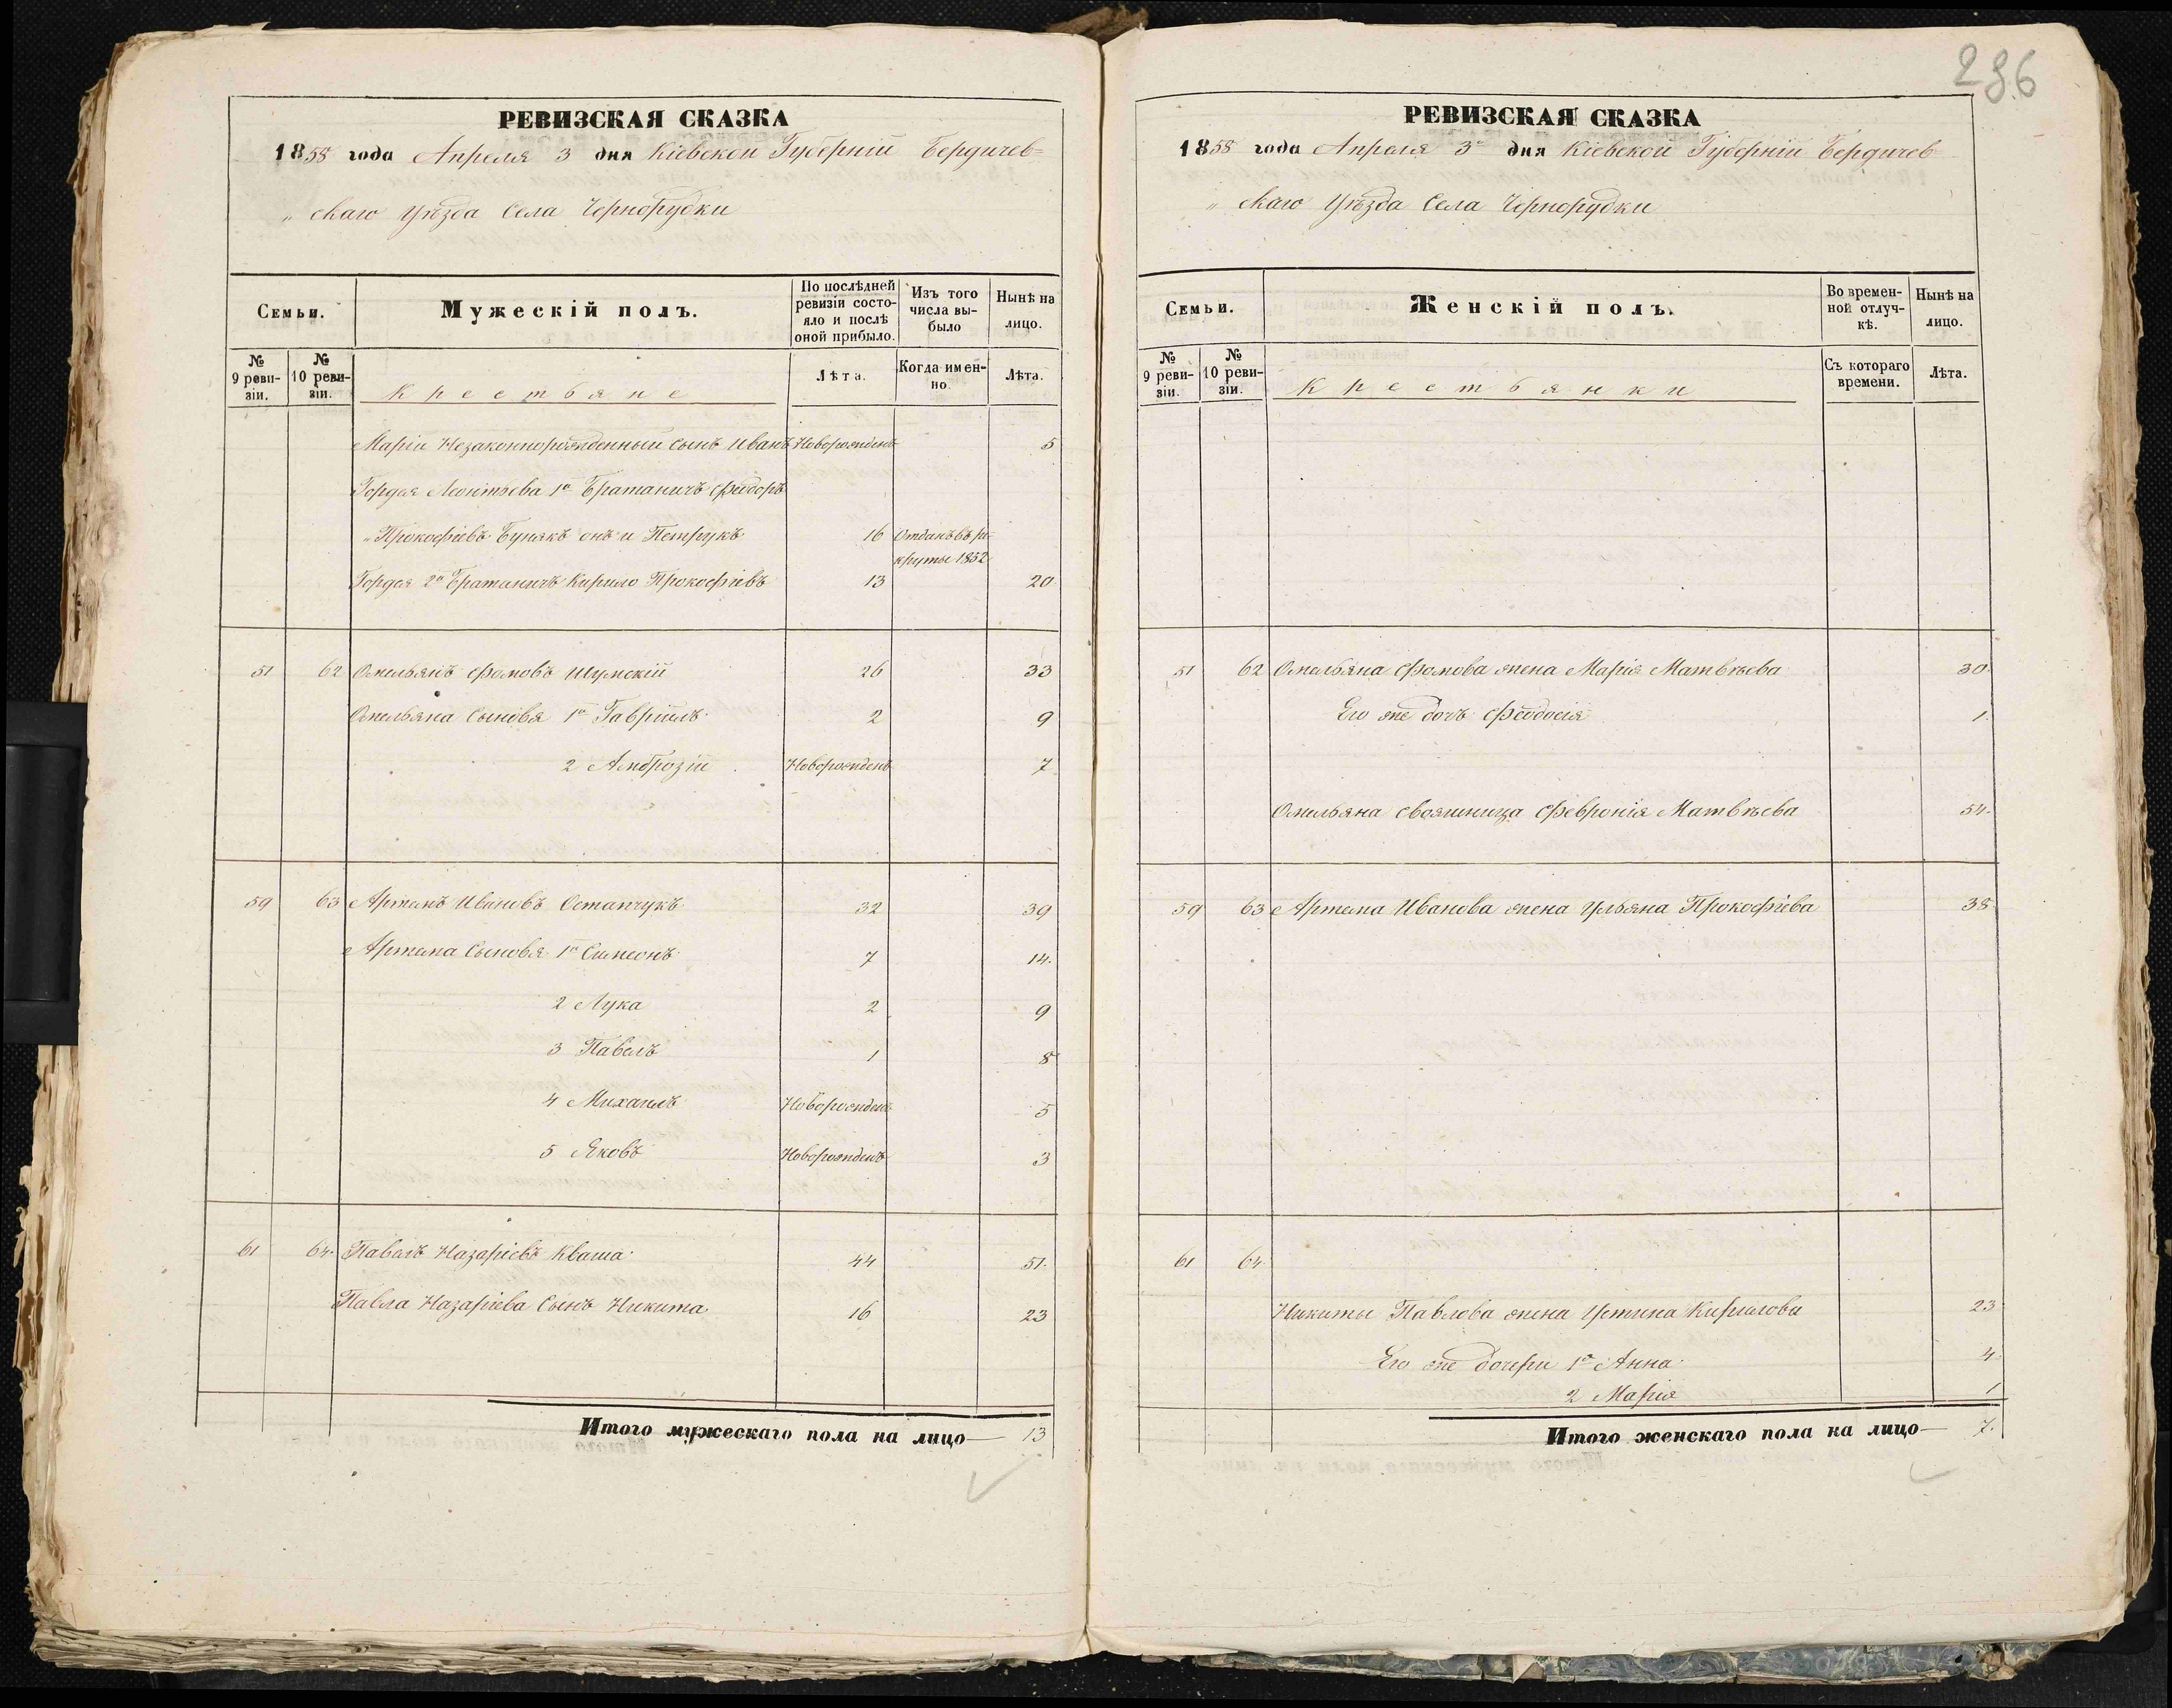 296
РЕВИЗСКАЯ СКАЗКА
1858 года Апреля 3 дня Кіевской Губерніи Бердичев=
„ скаго Уѣзда Села Чернорудки
Семьи.
Мужескій полъ.
По послѣдней ревизіи состояло и послѣ оной прибыло.
Изъ того числа выбыло
Нынѣ на лицо.
№ 9 ревизіи.
№ 10 ревизіи.
Крестьяне
Лѣта.
Когда именно.
Лѣта.
Маріи Незаконнорожденный сынъ Иванъ Новорожденъ 5
Гордея Леонтьева 1й Братаничъ Федоръ
„ Прокофіевъ Бунякъ онъ и Петрукъ 16 Отданъ въ рекруты 1852
Гордея 2й Братаничъ Кирило Прокофіевъ 13 20
51 62 Омельянъ Фомовъ Шумскій 26 33
Омельяна Сыновя 1й Гавріилъ 2 9
2 Амброзій Новорожденъ 7
59 63 Артемъ Ивановъ Остапчукъ 32 39
Артема Сыновя 1й Симеонъ 7 14.
2 Лука 2 9
3 Павелъ 1 8
4 Михаилъ Новорожденъ 5
5 Яковъ Новорожденъ 3
61 64. Павелъ Назаріевъ Кваша 44 51.
Павла Назаріева Сынъ Никита 16 23
Итого мужескаго пола на лицо— 13
РЕВИЗСКАЯ СКАЗКА
1858 года Апреля 3го дня Кіевской Губерніи Бердичев
„ скаго Уѣзда Села Чернорудки
Семьи.
Женскій полъ.
Во временной отлучкѣ.
Нынѣ на лицо.
№ 9 ревизіи.
№ 10 ревизіи.
Крестьянки
Съ котораго времени.
Лѣта.
51 62 Омельяна Фомова жена Марія Матвѣева 30.
Его же дочъ Феодосія 1.
Омельяна свояшница Февронія Матвѣева 54.
59 63 Артема Иванова жена Ульяна Прокофіева 38
61 64
Никиты Павлова жена Устина Кирилова 23
Его же дочери 1я Анна 4
2 Марія 1
Итого женскаго пола на лицо— 7.